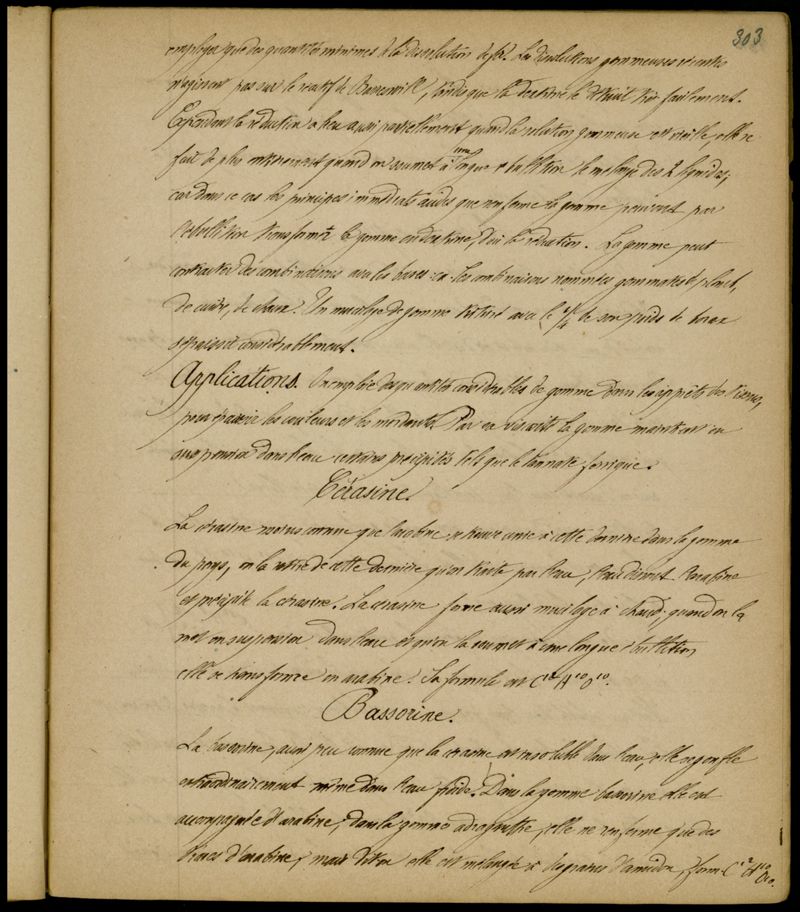 303
employer que des quantités minimes à la dissolution de fer. Les dissolutions gommeuses récentes
n'agissent pas sur le réactif de Bareswill, tandis que la dextrine le réduit très facilement.
Cependant la réduction a lieu aussi partiellement quand la solution gommeuse est vieille, elle se
fait de plus entièrement quand on soumet à une longue ébullition le mélange des 2 liquides;
car dans ce cas les principes immédiats acides que renferme la gomme peuvent par
ébullition transformer la gomme en dextrine, d'où la réduction. La gomme peut
contracter des combinaisons avec les bases ex. les combinaisons nommées gommates de plomb,
de cuivre, de chaux. Un mucilage de gomme trituré avec le 1/4 de son poids de borax
s'épaissit considérablement.
Applications. On emploie des quantités considérables de gomme dans les apprêts des tissus,
pour épaissir les couleurs et les mordants. Par sa viscosité la gomme maintient en
suspension dans l'eau certains précipités tels que le tannate ferrique.
Cérasine.
La cérasine moins connue que l'arabine se trouve unie à cette dernière dans la gomme
du pays, on la retire de cette dernière qu'on traite par l'eau, l'eau dissout l'arabine
et précipite la cérasine. La cérasine forme aussi mucilage à chaud; quand on la
met en suspension dans l'eau et qu'on la soumet à une longue ébullition
elle se transforme en arabine. Sa formule est C¹² H¹⁰ O¹⁰.
Bassorine.
La bassorine, aussi peu connue que la cérasine est insoluble dans l'eau, elle se gonfle
extraordinairement même dans l'eau froide. Dans la gomme bassorine elle est
accompagnée d'arabine, dans la gomme adragante, elle ne renferme que des
traces d'arabine, mais elle est mélangée à des graines d'amidon, form. C¹² H¹⁰ O¹⁰.